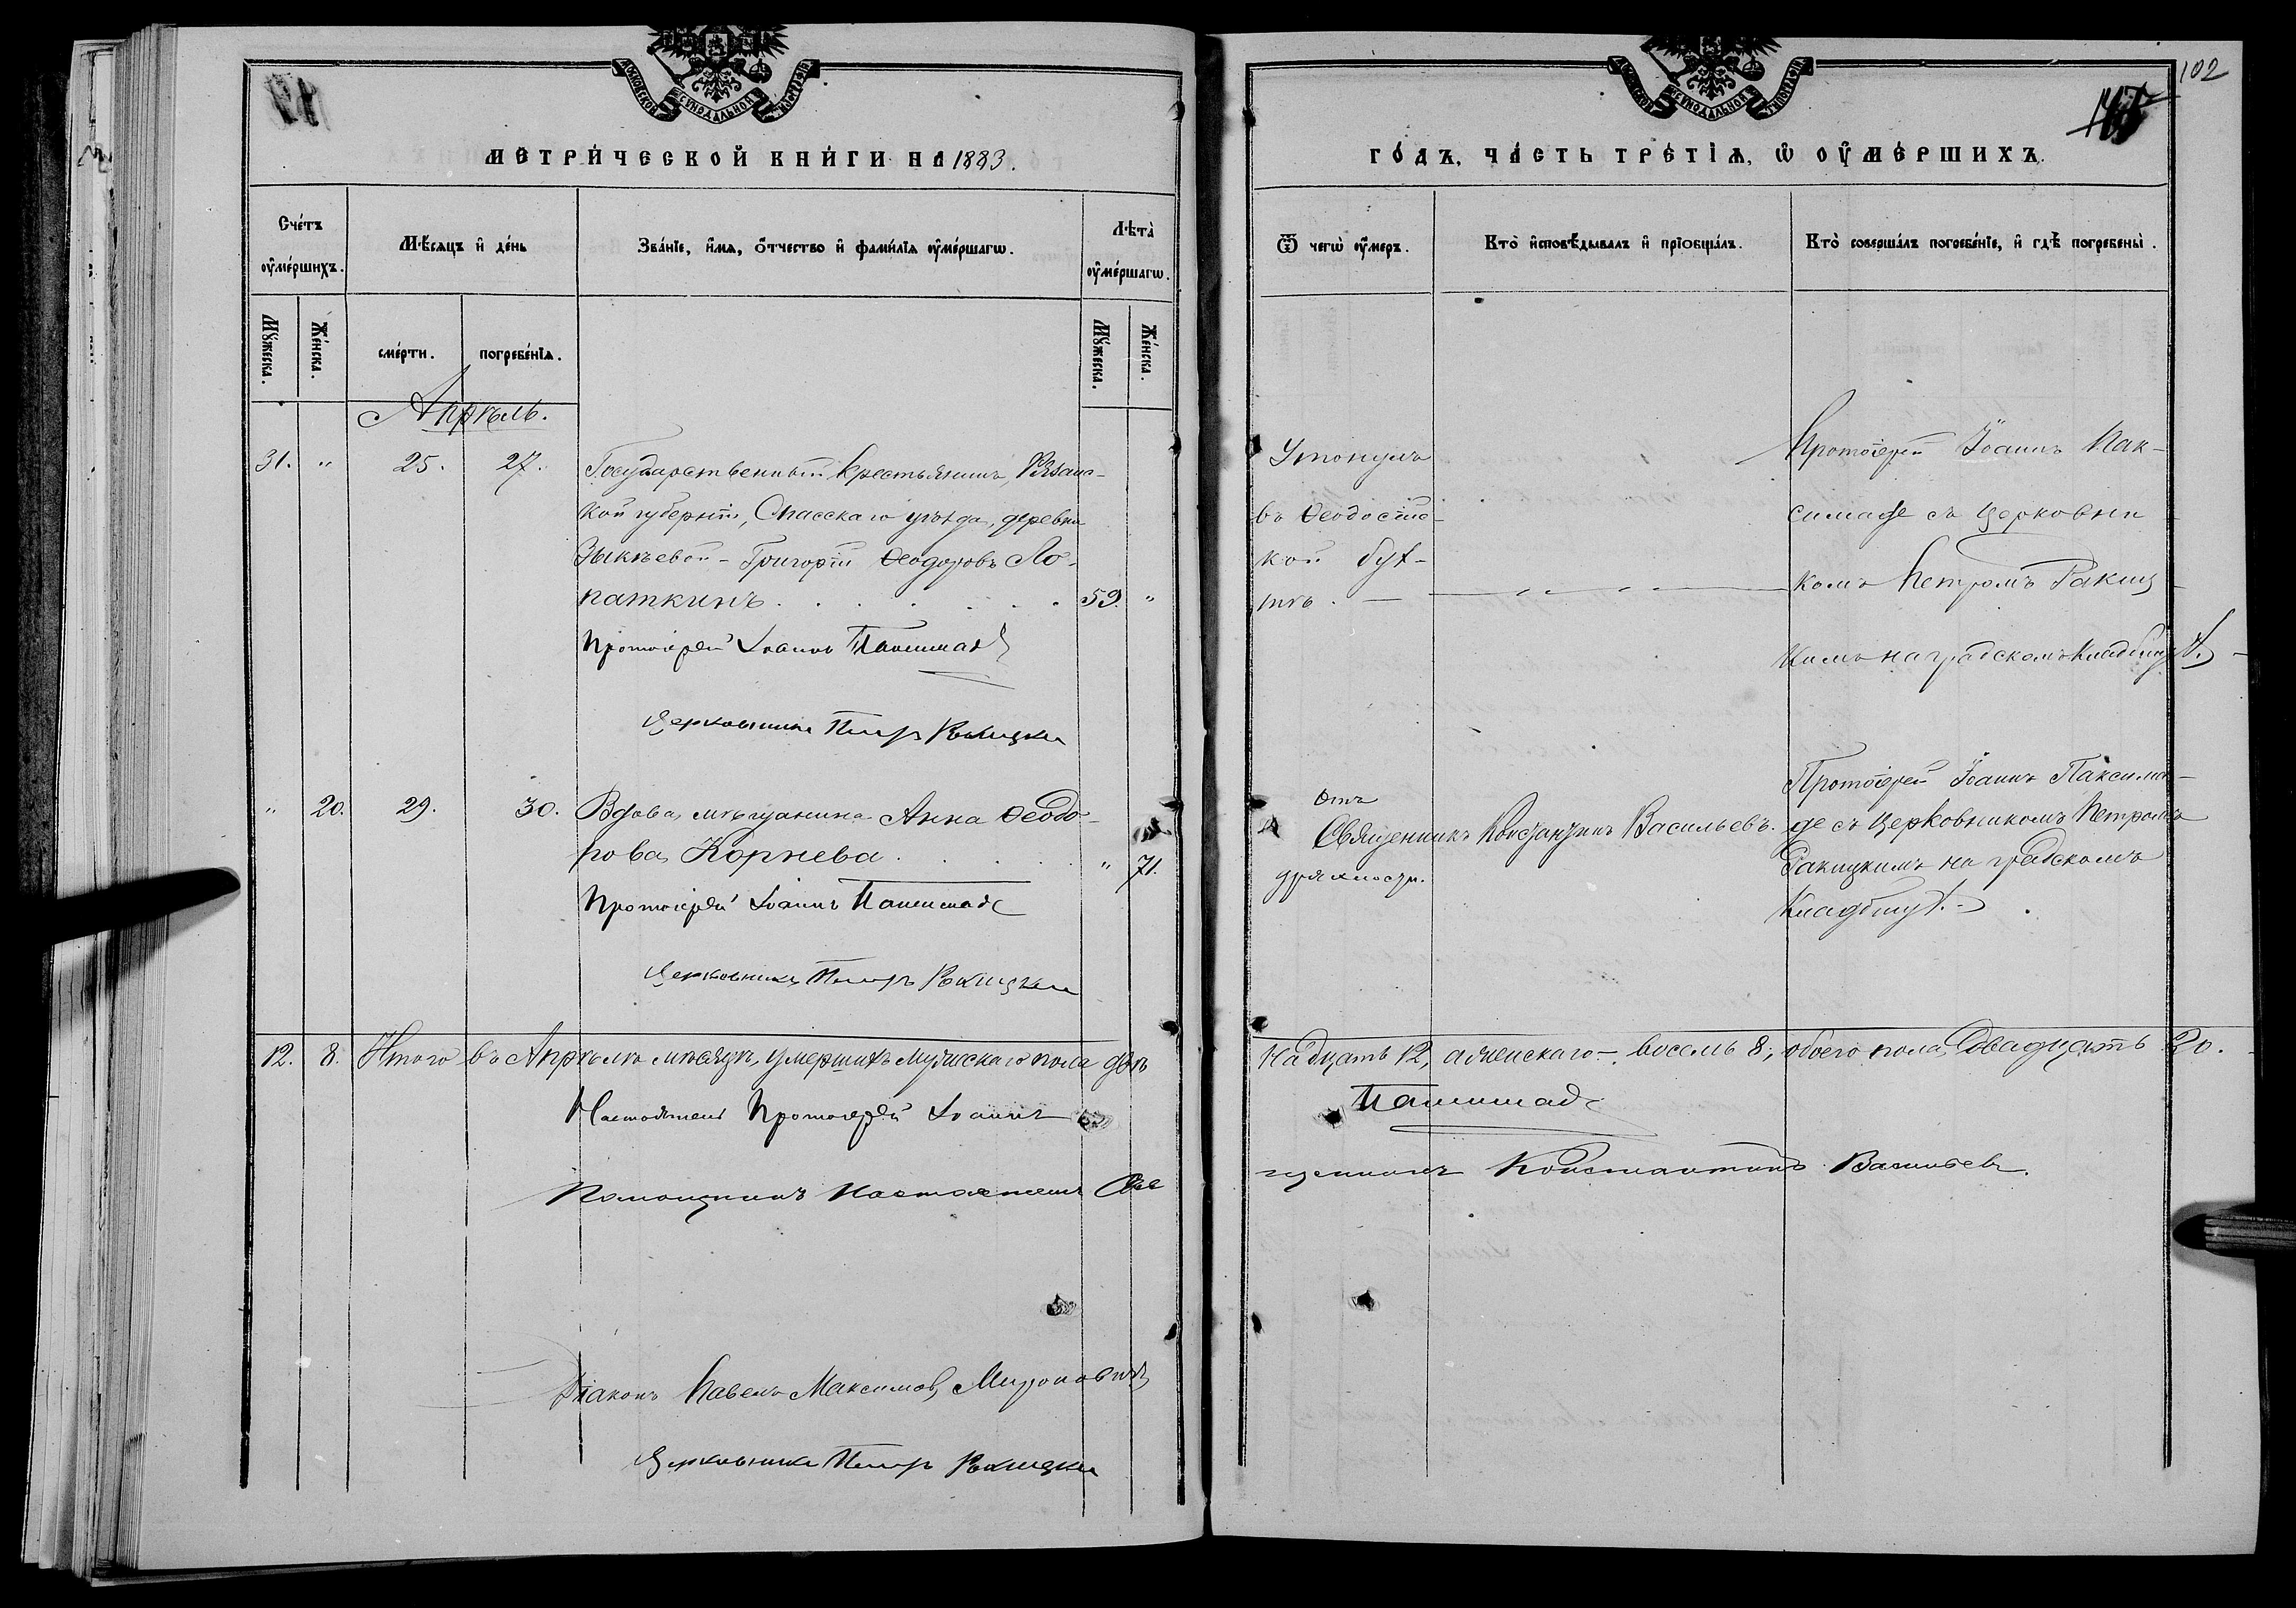 МОСКОВСКОЙ СѴНОДАЛЬНОЙ ТИПОГРАФІИ
МЕТРИ́ЧЕСКОЙ КНИ́ГИ НА 1883.
Сче́тъ ᲂу҆ме́ршихъ.
Мѣ́сяцъ и҆ де́нь
Зва́нїе, и҆́мя, ѻ҆́тчество и҆ фами́лїя ᲂу҆ме́ршагѡ.
Лѣта̀ ᲂу҆ме́ршагѡ.
Му́жеска.
Же́нска.
сме́рти.
погребе́нїя.
Му́жеска.
Же́нска.
Апрѣль.
31. " 25. 27. Государственный крестьянинъ, Рязанс-
кой губерніи, Спасскаго уѣзда, деревни
Зыкѣевой - Григорій Ѳеодоровъ Ло-
паткинъ . . . . . . . 59. "
Протоіерей Іоаннъ Паксимаде
Церковникъ Петръ Ракицкій
" 20. 29. 30. Вдова, мѣщанина Анна Ѳеодо-
рова Корнева . . . . . " 71.
Протоіерей Іоаннъ Паксимаде
Церковникъ Петръ Ракицкій
12. 8. Итого въ Апрѣлѣ мѣсяцѣ, умершихъ мужскаго пола двѣ
Настоятель Протоіерей Іоаннъ
Помощникъ Настоятеля Свя
Діаконъ Павелъ Максимовъ Мироновичъ
Церковникъ Петръ Ракицкій
102
МОСКОВСКОЙ СѴНОДАЛЬНОЙ ТИПОГРАФІИ
ГО́ДЪ, ЧА́СТЬ ТРЕ́ТІЯ, Ѡ҆ ОУ҆МЕ́РШИХЪ.
Ѿ чегѡ̀ ᲂу҆́меръ.
Кто̀ и҆сповѣ́дывалъ и҆ прїобща́лъ.
Кто̀ соверша́лъ погребе́нїе, и҆ гдѣ̀ погребены̀.
Утонулъ
въ Ѳеодосійс-
кой бух-
тѣ. — " — " — "
Протоіерей Іоаннъ Пак-
симаде съ церковни
комъ Петромъ Ракиц
кимъ на градскомъ кладбищѣ.
Отъ
дряхлости.
Священникъ Константинъ Васильевъ.
Протоіерей Іоаннъ Паксима-
де съ церковникомъ Петромъ
Ракицкимъ на градскомъ
кладбищѣ.
надцать 12, а женскаго - восемь 8; обоего пола, двадцать 20.
Паксимаде
щенникъ Константинъ Васильевъ.